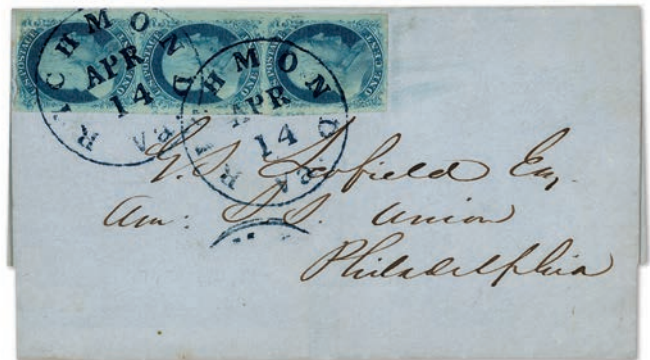 RICHMOND
APR
14
VA
RICHMOND
APR
14
VA.
G.S. Scofield Esq.
Am: S.S. Union
Philadelphia